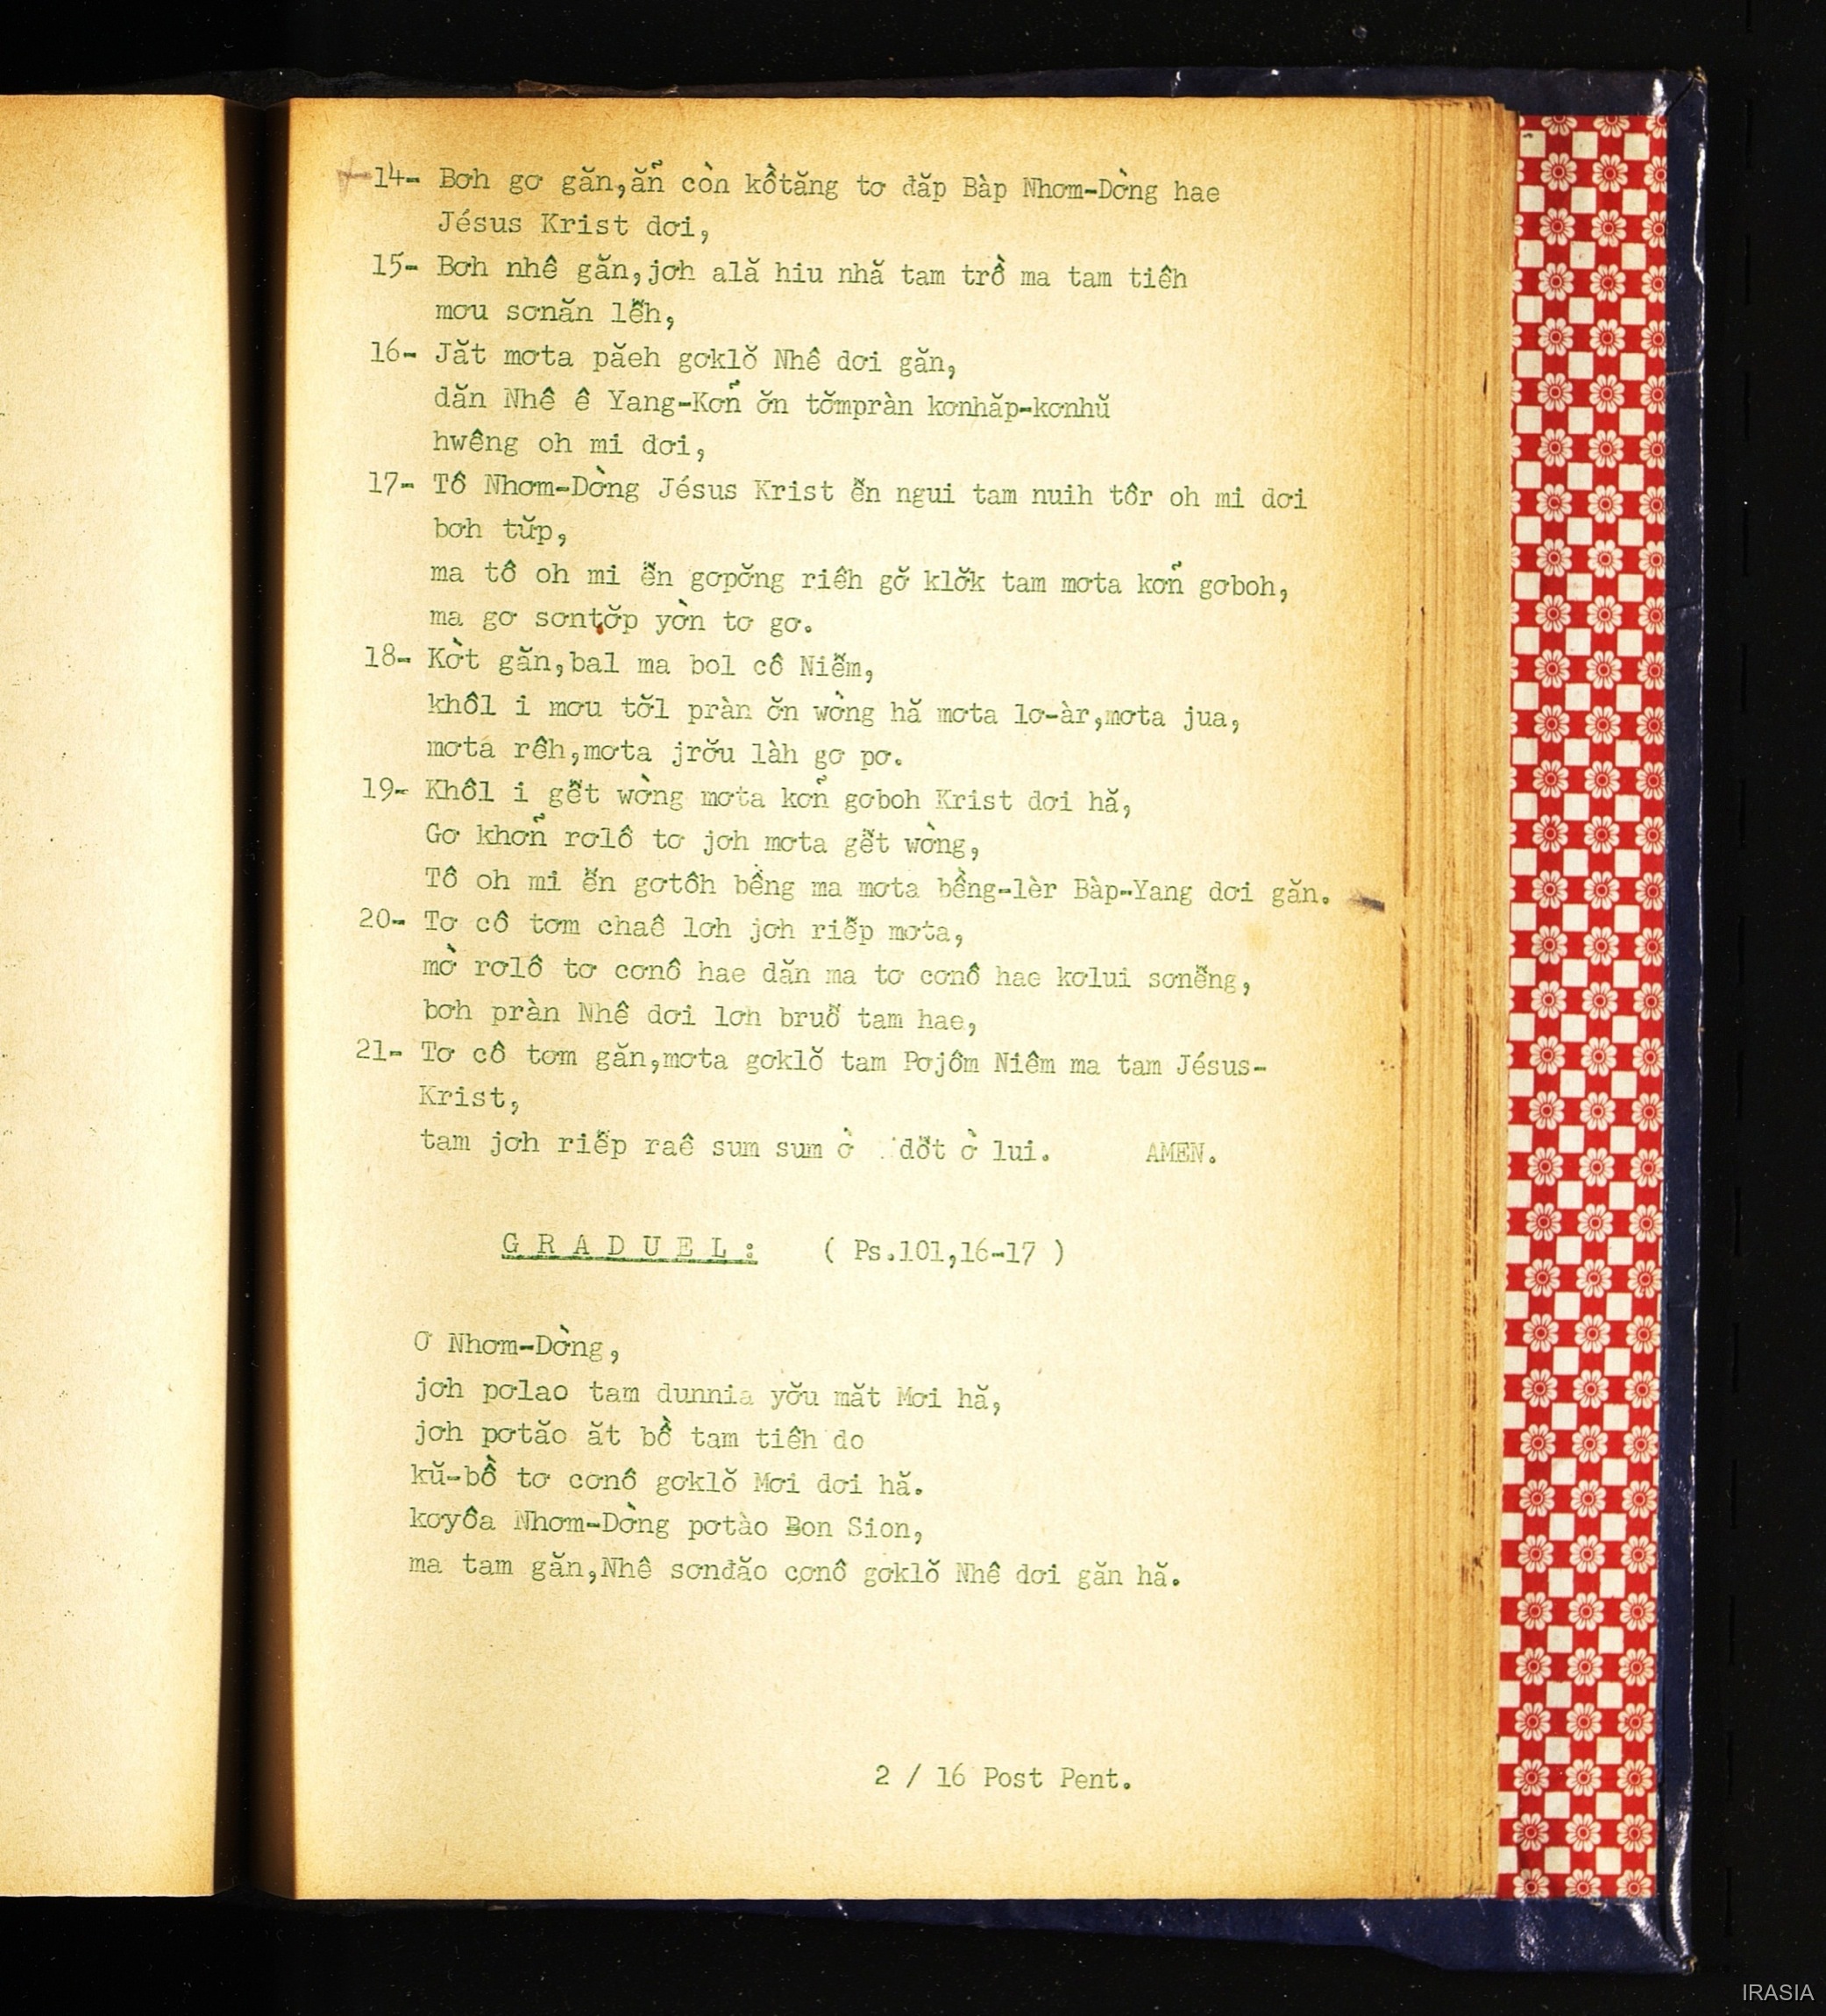 14- Bơh gơ găn,ăñ còn kồtăng tơ đăp Bàp Nhơm-Dờng hae
Jésus Krist dơi,
15- Bơh nhê găn,jơh ală hiu nhă tam trồ ma tam tiêh
mơu sơnăn lê̆h,
16- Jăt mơta păeh gơklŏ Nhê dơi găn,
dăn Nhê ê Yang-Kơñ ơ̆n tơ̆mpràn kơnhăp-kơnhŭ
hwêng oh mi dơi,
17- Tô Nhơm-Dờng Jésus Krist ê̆n ngui tam nuih tôr oh mi dơi
bơh tŭp,
ma tô oh mi ê̆n gơpơ̆ng riêh gơ̆ klơ̆k tam mơta kơñ gơboh,
ma gơ sơntơ̆p yờn tơ gơ.
18- Kờt găn,bal ma bol cô Niê̆m,
khôl i mơu tơ̆l pràn ơ̆n wờng hă mơta lơ-àr,mơta jua,
mơta rêh,mơta jrơ̆u làh gơ pơ.
19- Khôl i gê̆t wờng mơta kơñ gơboh Krist dơi hă,
Gơ khơñ rơlô tơ jơh mơta gê̆t wờng,
Tô oh mi ê̆n gơtôh bềng ma mơta bềng-lèr Bàp-Yang dơi găn.
20- Tơ cô tơm chaê lơh jơh riê̆p mơta,
mờ rơlô tơ cơnô hae dăn ma tơ cơnô hae kơlui sơnê̆ng,
bơh pràn Nhê dơi lơh bruô̆ tam hae,
21- Tơ cô tơm găn,mơta gơklŏ tam Pơjôm Niêm ma tam Jésus-
Krist,
tam jơh riê̆p raê sum sum ờ dô̆t ờ lui. AMEN.
G R A D U E L : ( Ps.101,16-17 )
Ơ Nhơm-Dờng,
jơh pơlao tam dunnia yơ̆u măt Mơi hă,
jơh pơtăo ăt bồ tam tiêh do
kŭ-bồ tơ cơnô gơklŏ Mơi dơi hă.
kơyôa Nhơm-Dờng pơtào Bon Sion,
ma tam găn,Nhê sơnđăo cơnô gơklŏ Nhê dơi găn hă.
2 / 16 Post Pent.
IRASIA